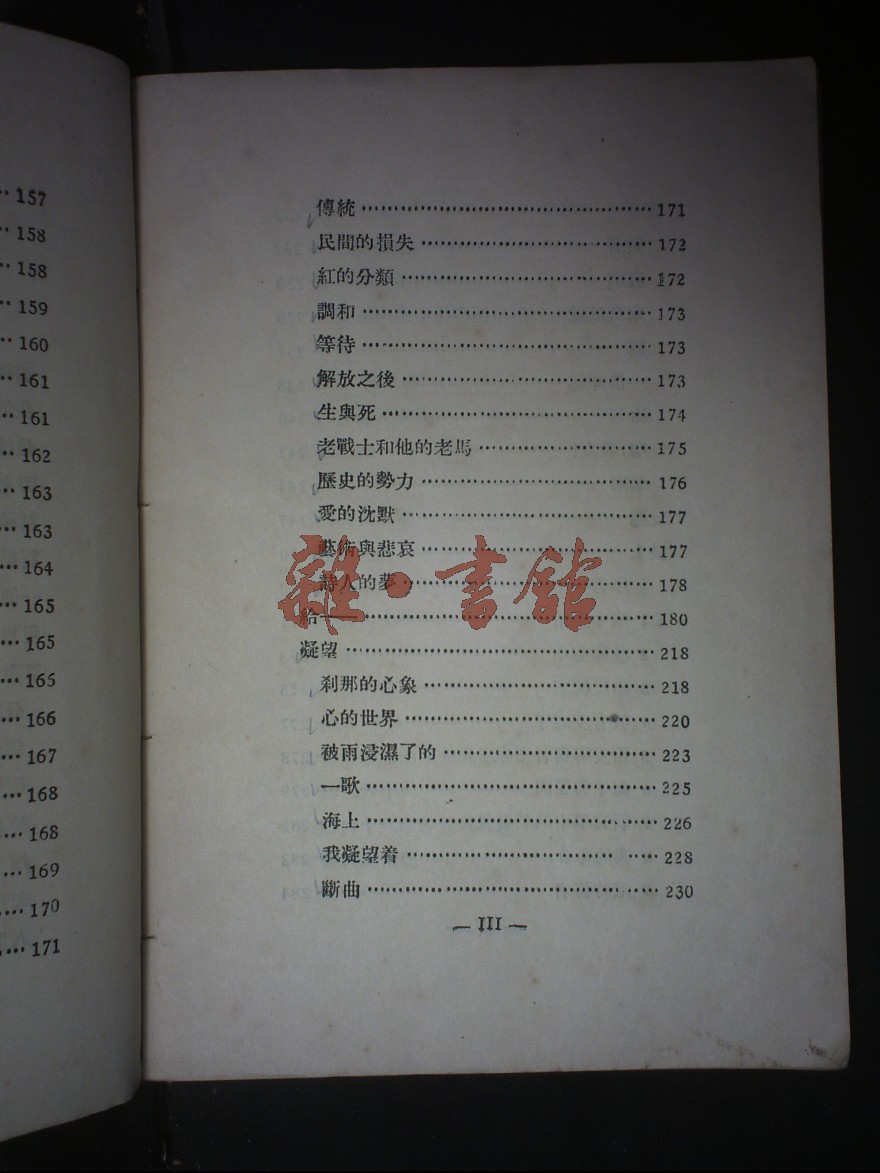 157
158
158
159
160
161
161
162
163
163
164
165
165
165
166
167
168
168
169
170
171
傳統 171
民間的損失 172
紅的分類 172
調和 173
等待 173
解放之後 173
生與死 174
老戰士和他的老馬 175
歷史的勢力 176
愛的沈默 177
藝術與悲哀 177
詩人的夢 178
給—— 180
凝望 218
刹那的心象 218
心的世界 220
被雨浸濕了的 223
一歌 225
海上 226
我凝望着 228
斷曲 230
— III —
雜·書館